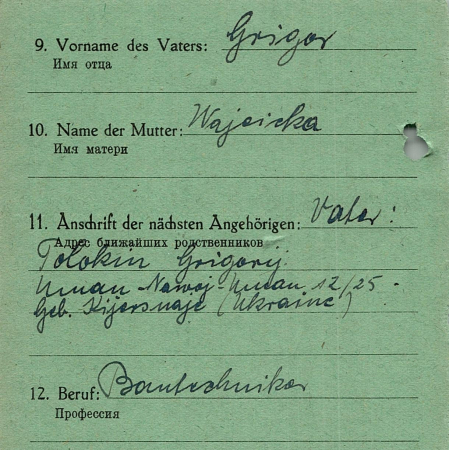 9. Vorname des Vaters: Grigor
Имя отца
10. Name der Mutter: Wajcicka
Имя матери
11. Anschrift der nächsten Angehörigen: Vater:
Адрес ближайших родственников
Tolokin Grigorij
Uman Nowoj-Uman 12/25
Geb. (Ukraine)
12. Beruf: Bautechniker
Профессия